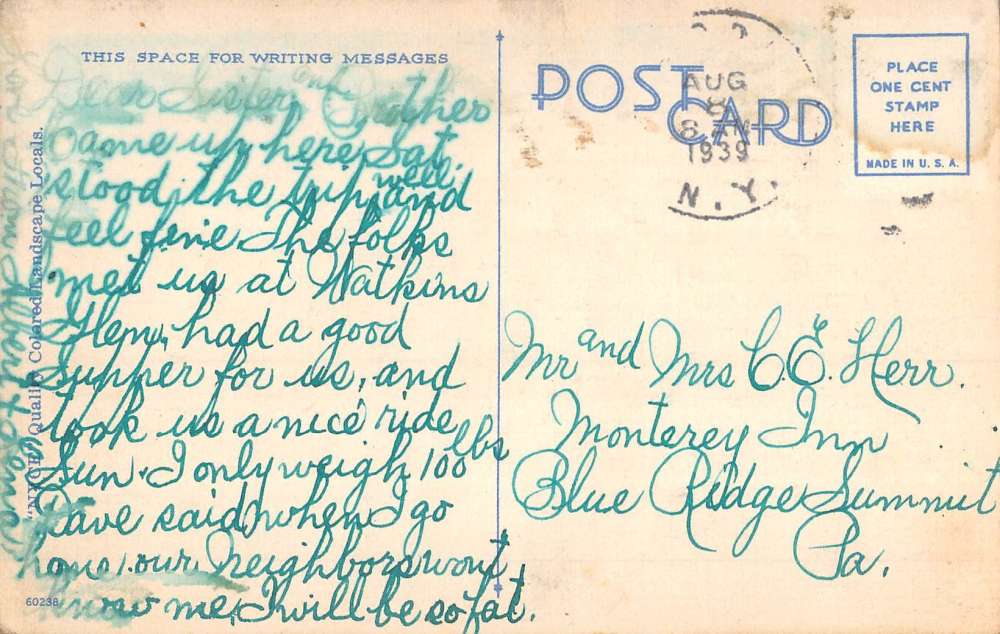 THIS SPACE FOR WRITING MESSAGES
Dear Sister and Brother
Came up here, Sat.
stood the trip well and
feel fine The folks
met us at Watkins
Glen, had a good
Supper for us, and
took us a nice ride
Sun. I only weigh 100 lbs
Dave said, when I go
home, our neighbors wont
know me, I will be so fat.
Quality Colored Landscape Locals.
60238
POST CARD
AUG
8
8 AM
1939
N.Y.
PLACE
ONE CENT
STAMP
HERE
MADE IN U. S. A.
Mr and Mrs C. E. Herr.
Monterey Inn
Blue Ridge Summit
Pa.